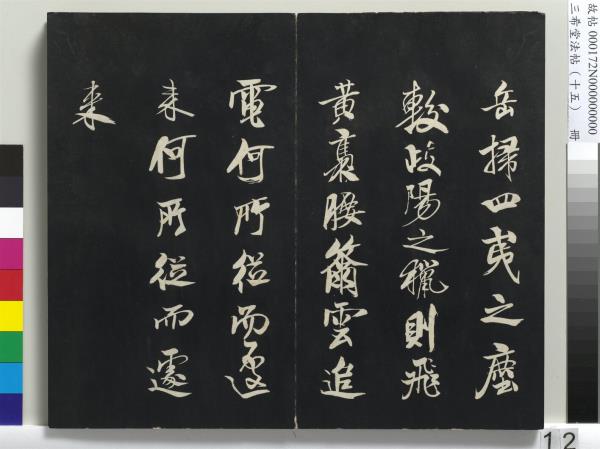 岳掃四夷之塵
較歧陽之獵則飛
黃褭腰籋雲追
電何所從而遽
来何所從而遽
来
故帖 000172N000000000
三希堂法帖（十五） 冊
12